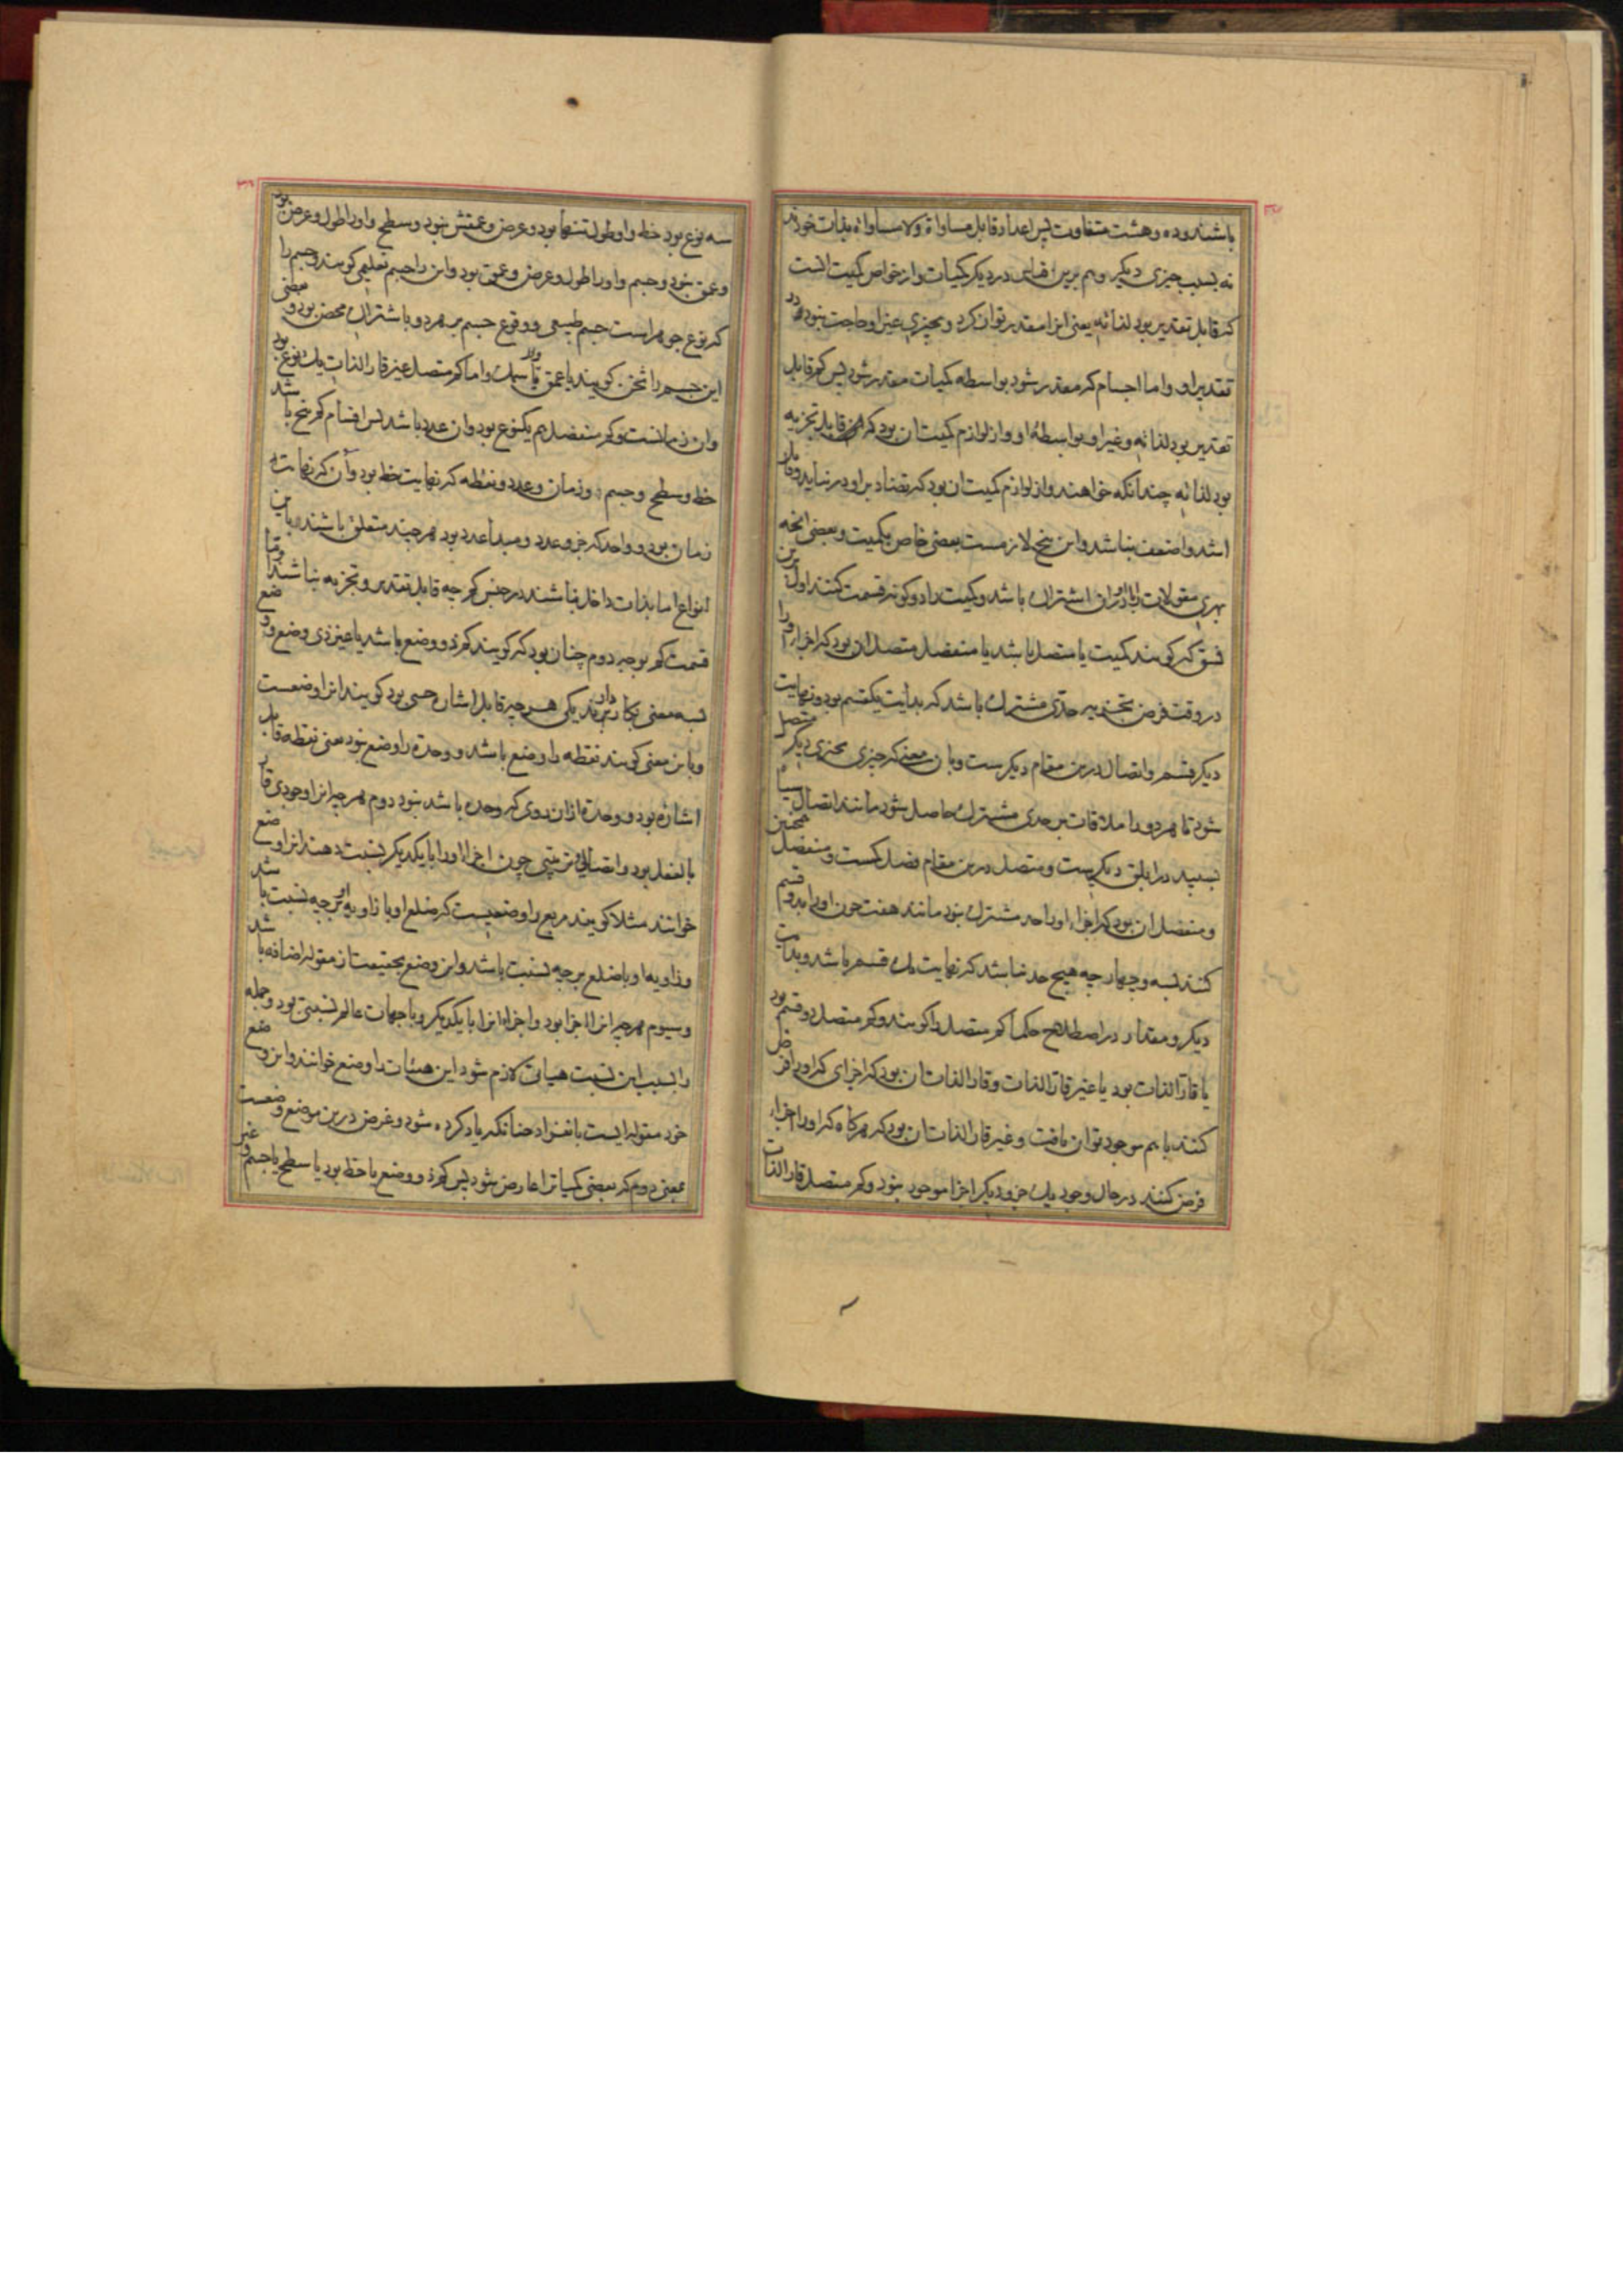 باشند و ده و هشت متفاوت پس اعداد قابل مساواة و لا مساواة بذات خودند
نه بسبب چیزی دیکر و هم برین قیاس در دیکر کمیات و از خواص کمیت انست
که قابل تقدیر بود لذاته یعنی انرا مقدر توان کرد و بچیزی غیر او حاجت نبود در
تقدیر او و اما اجسام کر مقدر شود بواسطه کمیات مقدر شود پس کم قابل
تقدیر بود لذاته و غیر او بواسطهٔ او و از لوازم کمیت ان بود که قابل تجزیه
بود لذاته چندانکه خواهند و از لوازم کمیت ان بود که تضاد بر او در نیاید و قابل
اشد و اضعف نباشد و این پنج لازمست بعضی خاص بکمیت و بعضی انچه
بهری مقولات را در ان اشتراک باشد و کمیت را دو کونه قسمت کنند اول برین
نسق که کویند کمیت یا متصل باشد یا منفصل متصل ان بود که اجزاء او را
در وقت فرض تجزیه حدی مشترک باشد که بدایت یکقسم بود و نهایت
دیکر قسم و اتصال درین مقام دیکرست و بان معنی که چیزی بچیزی دیکر متصل
شود تا هر دو را ملاقات بر حدی مشترک حاصل شود مانند اتصال سیاه
بسپید در ابلق دیکرست و متصل درین مقام فصل کمست و همچنین منفصل
و منفصل ان بود که اجزاء او را حد مشترک نبود مانند هفت چون او را بدو قسم
کنند بسه و چهار چه هیچ حد نباشد که نهایت یک قسم باشد و بدایت
دیکر و مقدار در اصطلاح حکما کم متصل را کویند و کم متصل دو قسم بود
یا قار الذات بود یا غیر قار الذات و قار الذات ان بود که اجزای که او را فرض
کنند با هم موجود توان یافت و غیر قار الذات ان بود که هرکاه که او را اجزاء
فرض کنند در حال وجود یک جزو دیکر اجزا موجود نبود و کم متصل قار الذات
سه نوع بود خط و او طول تنها بود و عرض و عمقش نبود و سطح و او را طول و عرض بود
و عمق نبود و جسم و او را طول و عرض و عمق بود و این را جسم تعلیمی کویند و جسم را
که نوع جوهر است جسم طبیعی و وقوع جسم بر هر دو باشتراک محض بود و بعضی
این جسم را ثخن کویند یا عمق یا سمک و اما کم متصل غیر قار الذات یک نوع بود
و ان زمانست و کم منفصل هم یکنوع بود و ان عدد باشد پس اقسام کم پنج باشد
خط و سطح و جسم و زمان و عدد و نقطه که نهایت خط بود و ان که نهایت
زمان بود و واحد که جزو عدد و مبدا عدد بود هرچند متعلق باشند باین
انواع اما بذات داخل نباشند در جنس کم چه قابل تقدیر و تجزیه نباشند و اما
قسمت کم بوجه دوم چنان بود که کویند کم ذو وضع باشد یا غیر ذی وضع و وضع
بسه معنی بکار دارند یکی هرچه قابل اشارت حسی بود کویند انرا وضعست
و باین معنی کویند نقطه را وضع باشد و وحدة را وضع نبود یعنی نقطه قابل
اشاره بود و وحدة ازان روی که وحده باشد نبود دوم هرچه انرا وجودی قار
بالفعل بود و اتصالی و ترتیبی چون اجزاء او را با یکدیکر نسبت دهند انرا وضع
خوانند مثلا کویند مربع را وضعیست که ضلع او با زاویه او برچه نسبت باشد
و زاویه او با ضلع برچه نسبت باشد و این وضع بحقیقت از مقوله اضافه باشد
و سیوم هرچه انرا اجزا بود و اجزاء انرا با یکدیکر و با جهات عالم نسبتی بود و جمله
را بسبب این نسبت هیاتی لازم شود این هیئات را وضع خوانند و این وضع
خود مقوله ایست بانفراد چنانکه یاد کرده شود و غرض درین موضع وضعست
بمعنی دوم که بعضی کمیات را عارض شود پس کم ذو وضع یا خط بود یا سطح یا جسم و غیر